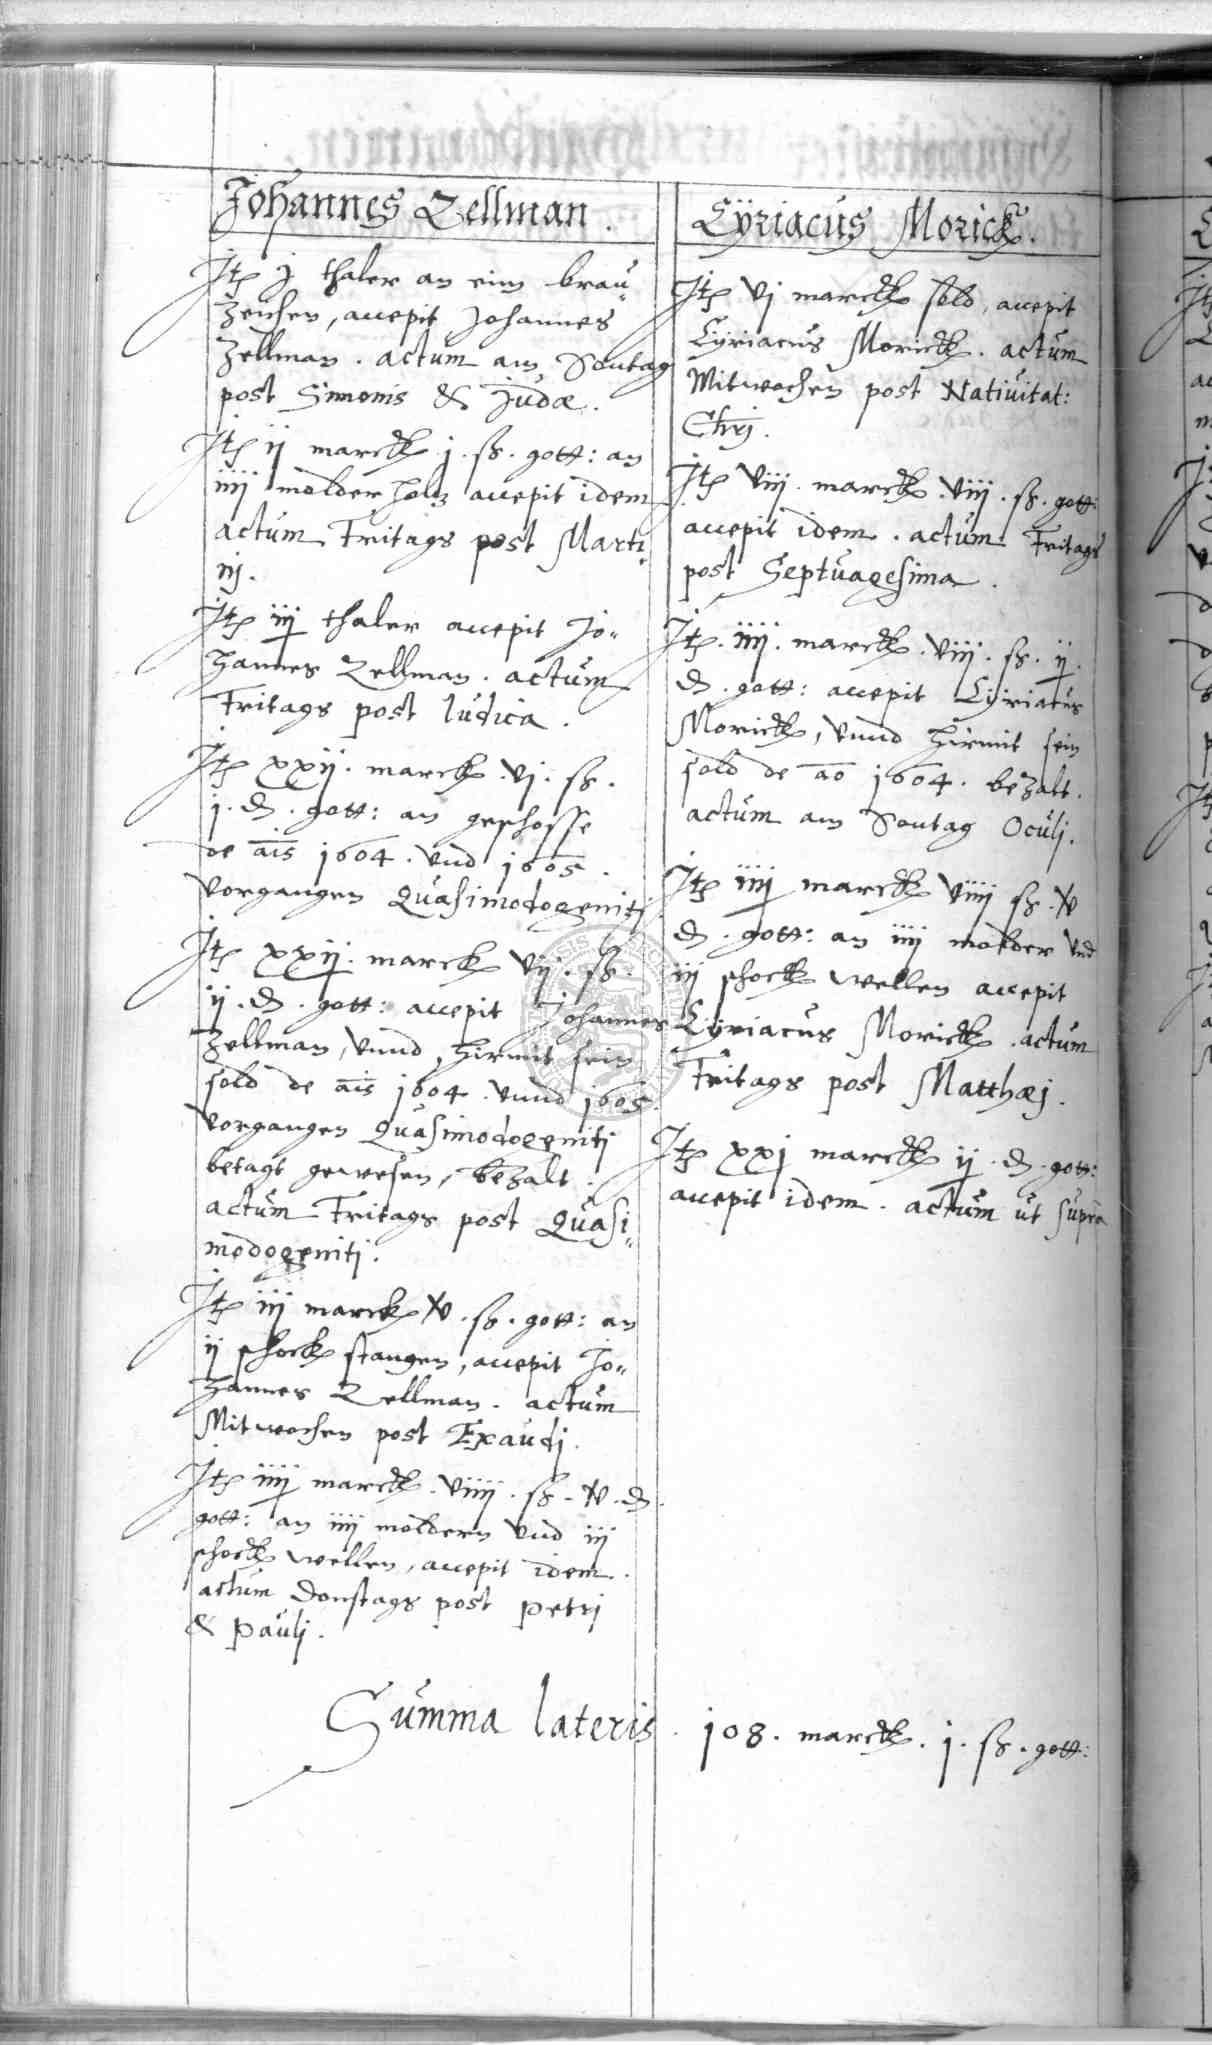 Johannes Zellman.
Jtꝫ j thaler an eim brau„
zeichen, accepit Johannes
Zellman. actum am Sontag
post Simonis & Judæ.
Jtꝫ ij marck j. ß. gott: an
iiij molder holtz accepit idem
actum Fritags post Marti„
nj.
Jtꝫ iij thaler accepit Jo„
hannes Zellman. actum
Fritags post Iudica.
Jtꝫ xxij. marck. vj. ß.
j. ₰. gott: an geschosse
de ais 1604. vnd 1605.
vorgangen Quasimodogeniti
Jtꝫ xxij. marck vij. ß.
ij. ₰. gott: accepit Johannes
Zellman, vnnd hirmit sein
sold de ais 1604. vnnd 1605.
vorgangen Quasimodogeniti
betagt gewesen, bezalt.
actum Fritags post Quasi„
modogeniti.
Jtꝫ iij marck v. ß. gott: an
ij schock stangen, accepit Jo„
hannes Zellman. actum
Mitwochen post Exaudj.
Jtꝫ iiij marck. viiij. ß. v. ₰.
gott: an iiij moldern vnd iij
schock wellen, accepit idem.
actum Donstags post Petri
& Pauli.
Cÿriacus Morick.
Jtꝫ vj marck sold, accepit
Cÿriacus Morick. actum
Mitwochen post Natiuitat:
Chrj.
Jtꝫ viij. marck. viij. ß. gott:
accepit idem. actum Fritags
post Septuagesima.
Jtꝫ. iiij. marck. viij. ß. ij.
₰. gott: accepit Cÿriacus
Morick, vnnd hirmit sein
sold de ao 1604. bezalt.
actum am Sontag Oculj.
Jtꝫ iiij marck viiij ß. v
₰. gott: an iiij molder vnd
iij schock wellen accepit
Cÿriacus Morick. actum
Fritags post Matthæj.
Jtꝫ xxj marck ij. ₰. gott:
accepit idem. actum ut supra
Summa lateris. 108. marck. j. ß. gott: